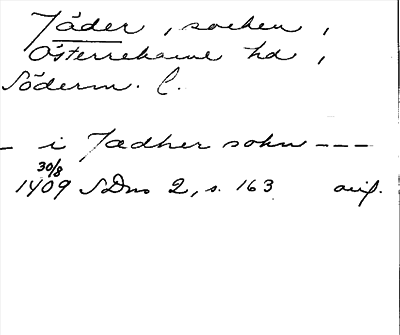 Jäder, socken,
Österrekarne hd,
Söderm. l.
– i Jædher sokn ---
30/8
1409 SDns 2, s. 163 orig.